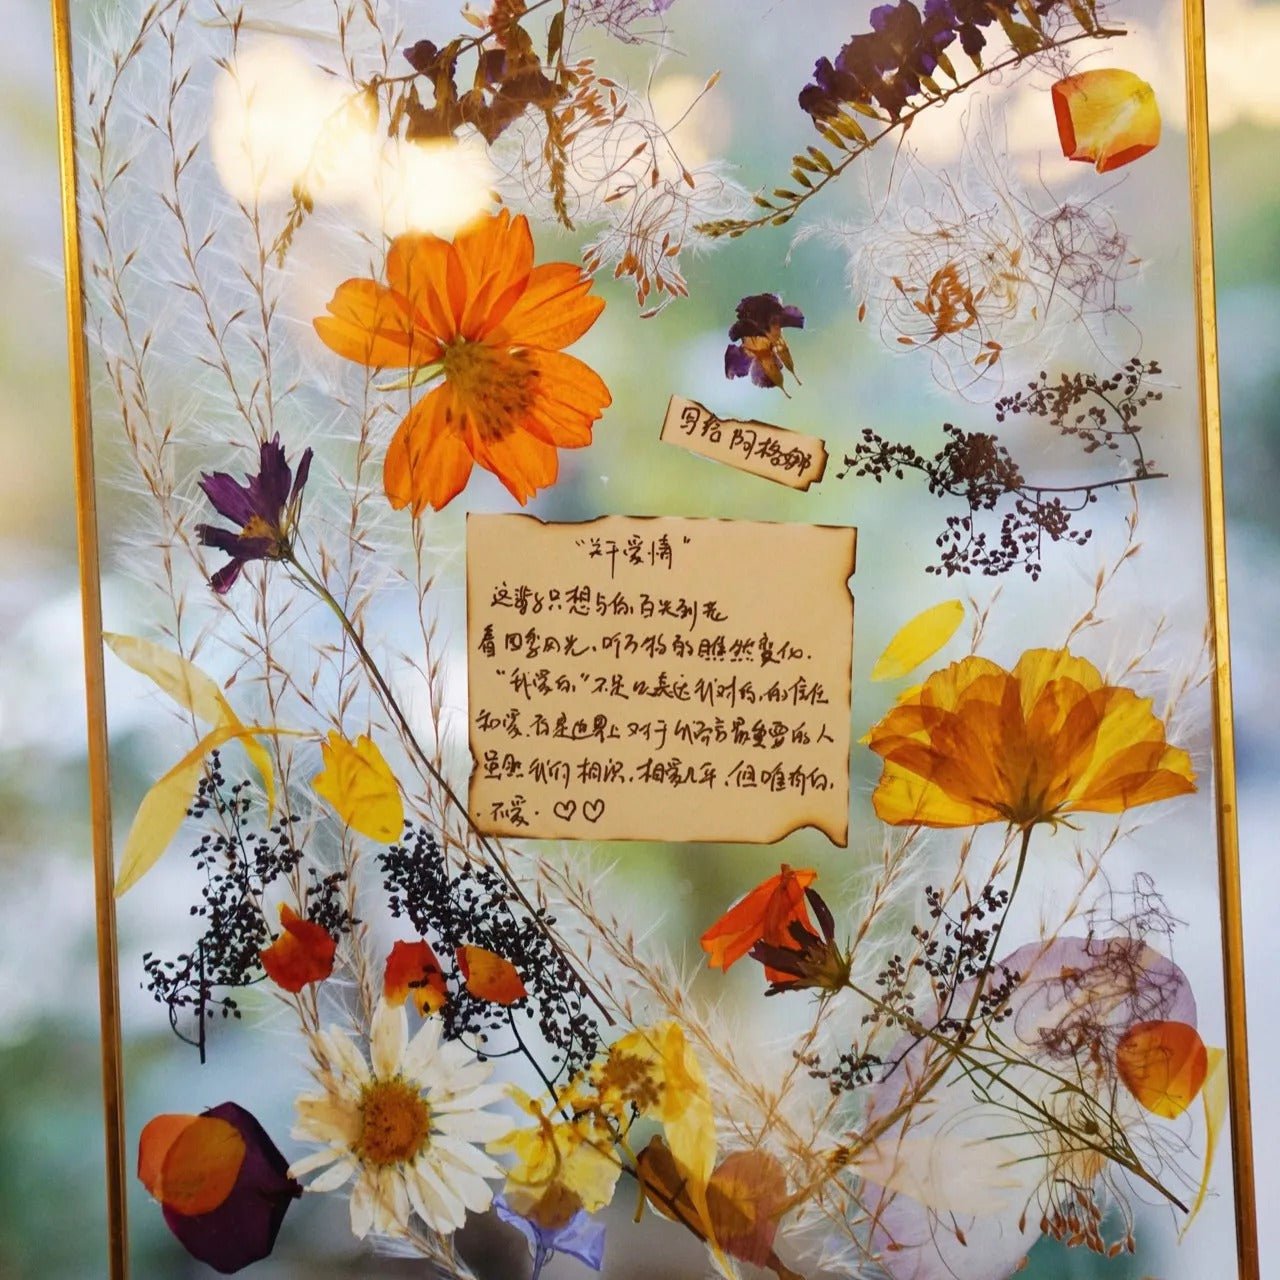 写给阿格娜
“关于爱情”
这辈子只想与你百头到老
看四季风光，听万物的瞧然变化.
“我爱你”不足以表达我对你的信任
和爱.你是世界上对于我而言最重要的人
虽然我们相识.相爱几年.但唯有你.
不爱.♡♡